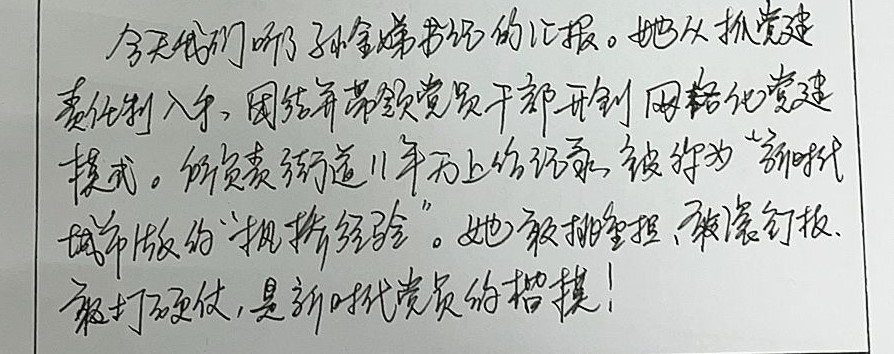 今天我们听了孙金娣书记的汇报。她从抓党建
责任制入手、团结并带领党员干部开创网格化党建
模式。所负责街道11年无上访记录、被称为“新时代
城市版的“枫桥经验”。她敢挑重担、敢滚钉板、
敢打硬仗，是新时代党员的楷模！